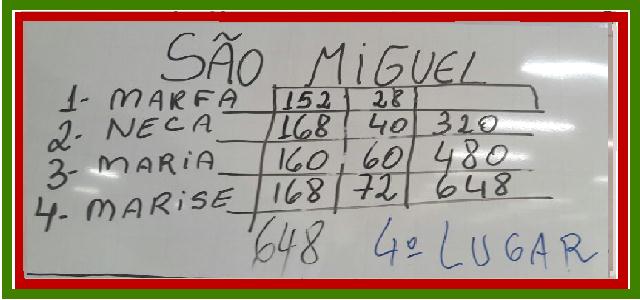 SÃO MIGUEL
1- MARFA 152 28
2- NECA 168 40 320
3- MARIA 160 60 480
4- MARISE 168 72 648
648 4º LUGAR